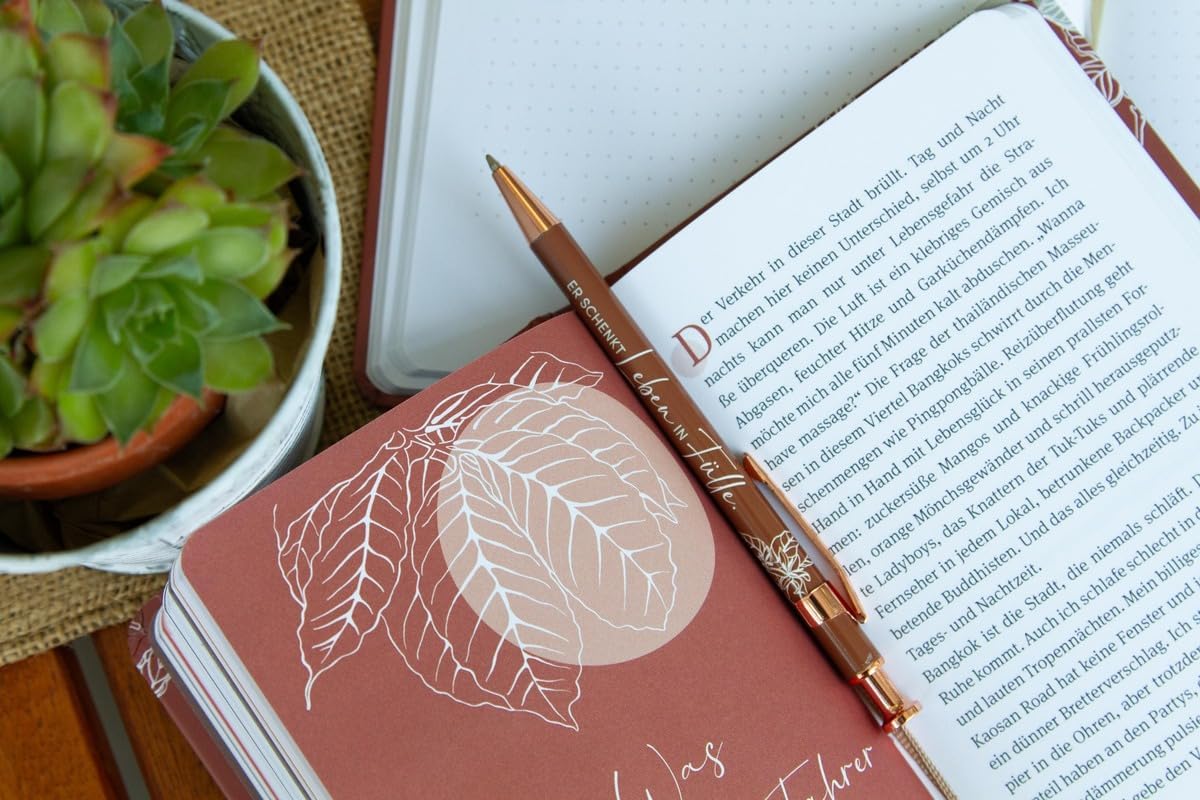 Der Verkehr in dieser Stadt brüllt. Tag und Nacht
machen hier keinen Unterschied, selbst um 2 Uhr
nachts kann man nur unter Lebensgefahr die Stra-
ße überqueren. Die Luft ist ein klebriges Gemisch aus
Abgasen, feuchter Hitze und Garküchendämpfen. Ich
möchte mich alle fünf Minuten kalt abduschen. „Wanna
have massage?“ Die Frage der thailändischen Masseu-
sen in diesem Viertel Bangkoks schwirrt durch die Men-
schenmengen wie Pingpongbälle. Reizüberflutung geht
Hand in Hand mit Lebensglück in seinen prallsten For-
men: zuckersüße Mangos und knackige Frühlingsrol-
len, orange Mönchsgewänder und schrill herausgeputz-
te Ladyboys, das Knattern der Tuk-Tuks und plärrende
Fernseher in jedem Lokal, betrunkene Backpacker
betende Buddhisten. Und das alles gleichzeitig. Zu
Tages- und Nachtzeit.
Bangkok ist die Stadt, die niemals schläft,
Ruhe kommt. Auch ich schlafe schlecht in
und lauten Tropennächten. Mein billige
Kaosan Road hat keine Fenster und
ein dünner Bretterverschlag. Ich
pier in die Ohren, aber trotzde
teil haben an den Partys,
dämmerung pulsi
gebe den
ER SCHENKT Leben IN Fülle.
Was